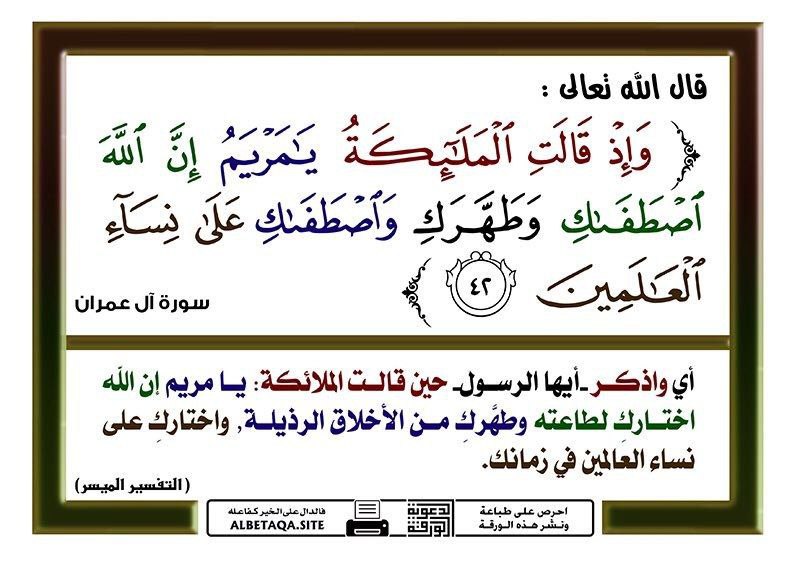 قال الله تعالى :
﴿ وَإِذْ قَالَتِ ٱلْمَلَـٰٓئِكَةُ يَـٰمَرْيَمُ إِنَّ ٱللَّهَ
ٱصْطَفَىٰكِ وَطَهَّرَكِ وَٱصْطَفَىٰكِ عَلَىٰ نِسَآءِ
ٱلْعَـٰلَمِينَ ٤٢ ﴾ سورة آل عمران
أي واذكر ـ أيها الرسول ـ حين قالت الملائكة: يا مريم إن الله
اختاركِ لطاعته وطهَّركِ من الأخلاق الرذيلة, واختاركِ على
نساء العالمين في زمانك.
(التفسير الميسر)
احرص على طباعة
ونشر هذه الورقة
الورقة الدعوية
فالدال على الخير كفاعله
ALBETAQA.SITE